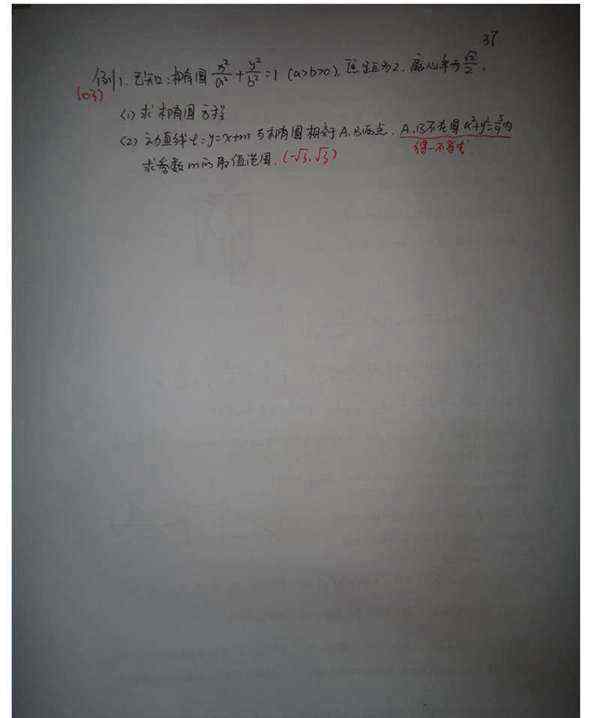 37
例1. 已知:椭圆 x²/a² + y²/b² = 1 (a>b>0), 焦距为2, 离心率为 √2/2.
(03)
(1) 求椭圆方程
(2) 动直线 l: y=x+m 与椭圆相交于 A.B两点, A.B不在圆 x²+y²=5/9 内
得一不等式
求参数 m 的取值范围. (-√3,√3)